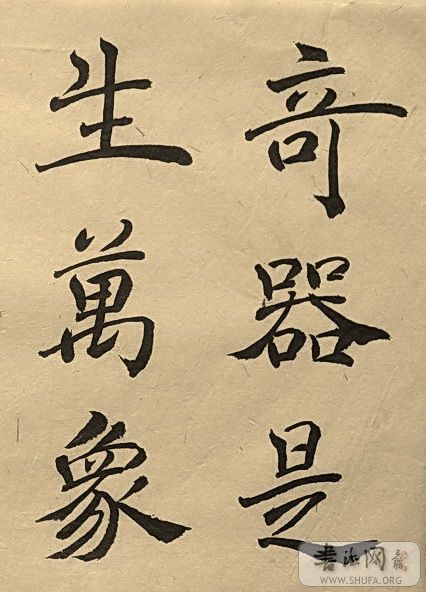 奇器是
生萬象
書法网
WWW.SHUFA.ORG